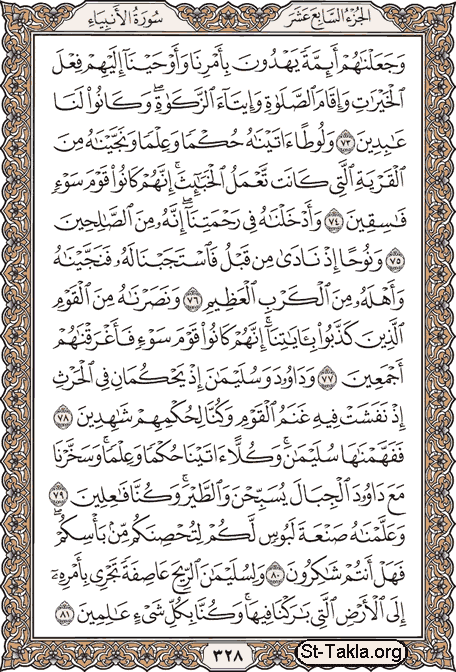 الجزء السابع عشر
سورة الأنبياء
وَجَعَلْنَٰهُمْ أَئِمَّةً يَهْدُونَ بِأَمْرِنَا وَأَوْحَيْنَآ إِلَيْهِمْ فِعْلَ
ٱلْخَيْرَٰتِ وَإِقَامَ ٱلصَّلَوٰةِ وَإِيتَآءَ ٱلزَّكَوٰةِ ۖ وَكَانُوا۟ لَنَا
عَٰبِدِينَ ﴿٧٣﴾ وَلُوطًا ءَاتَيْنَٰهُ حُكْمًا وَعِلْمًا وَنَجَّيْنَٰهُ مِنَ
ٱلْقَرْيَةِ ٱلَّتِى كَانَت تَّعْمَلُ ٱلْخَبَٰٓئِثَ ۗ إِنَّهُمْ كَانُوا۟ قَوْمَ سَوْءٍ
فَٰسِقِينَ ﴿٧٤﴾ وَأَدْخَلْنَٰهُ فِى رَحْمَتِنَآ ۖ إِنَّهُۥ مِنَ ٱلصَّٰلِحِينَ
﴿٧٥﴾ وَنُوحًا إِذْ نَادَىٰ مِن قَبْلُ فَٱسْتَجَبْنَا لَهُۥ فَنَجَّيْنَٰهُ
وَأَهْلَهُۥ مِنَ ٱلْكَرْبِ ٱلْعَظِيمِ ﴿٧٦﴾ وَنَصَرْنَٰهُ مِنَ ٱلْقَوْمِ
ٱلَّذِينَ كَذَّبُوا۟ بِـَٔايَٰتِنَآ ۚ إِنَّهُمْ كَانُوا۟ قَوْمَ سَوْءٍ فَأَغْرَقْنَٰهُمْ
أَجْمَعِينَ ﴿٧٧﴾ وَدَاوُۥدَ وَسُلَيْمَٰنَ إِذْ يَحْكُمَانِ فِى ٱلْحَرْثِ
إِذْ نَفَشَتْ فِيهِ غَنَمُ ٱلْقَوْمِ وَكُنَّا لِحُكْمِهِمْ شَٰهِدِينَ ﴿٧٨﴾
فَفَهَّمْنَٰهَا سُلَيْمَٰنَ ۚ وَكُلًّا ءَاتَيْنَا حُكْمًا وَعِلْمًا ۚ وَسَخَّرْنَا
مَعَ دَاوُۥدَ ٱلْجِبَالَ يُسَبِّحْنَ وَٱلطَّيْرَ ۚ وَكُنَّا فَٰعِلِينَ ﴿٧٩﴾
وَعَلَّمْنَٰهُ صَنْعَةَ لَبُوسٍ لَّكُمْ لِتُحْصِنَكُم مِّنۢ بَأْسِكُمْ ۖ
فَهَلْ أَنتُمْ شَٰكِرُونَ ﴿٨٠﴾ وَلِسُلَيْمَٰنَ ٱلرِّيحَ عَاصِفَةً تَجْرِى بِأَمْرِهِۦٓ
إِلَى ٱلْأَرْضِ ٱلَّتِى بَٰرَكْنَا فِيهَا ۚ وَكُنَّا بِكُلِّ شَىْءٍ عَٰلِمِينَ ﴿٨١﴾
٣٢٨
St-Takla.org